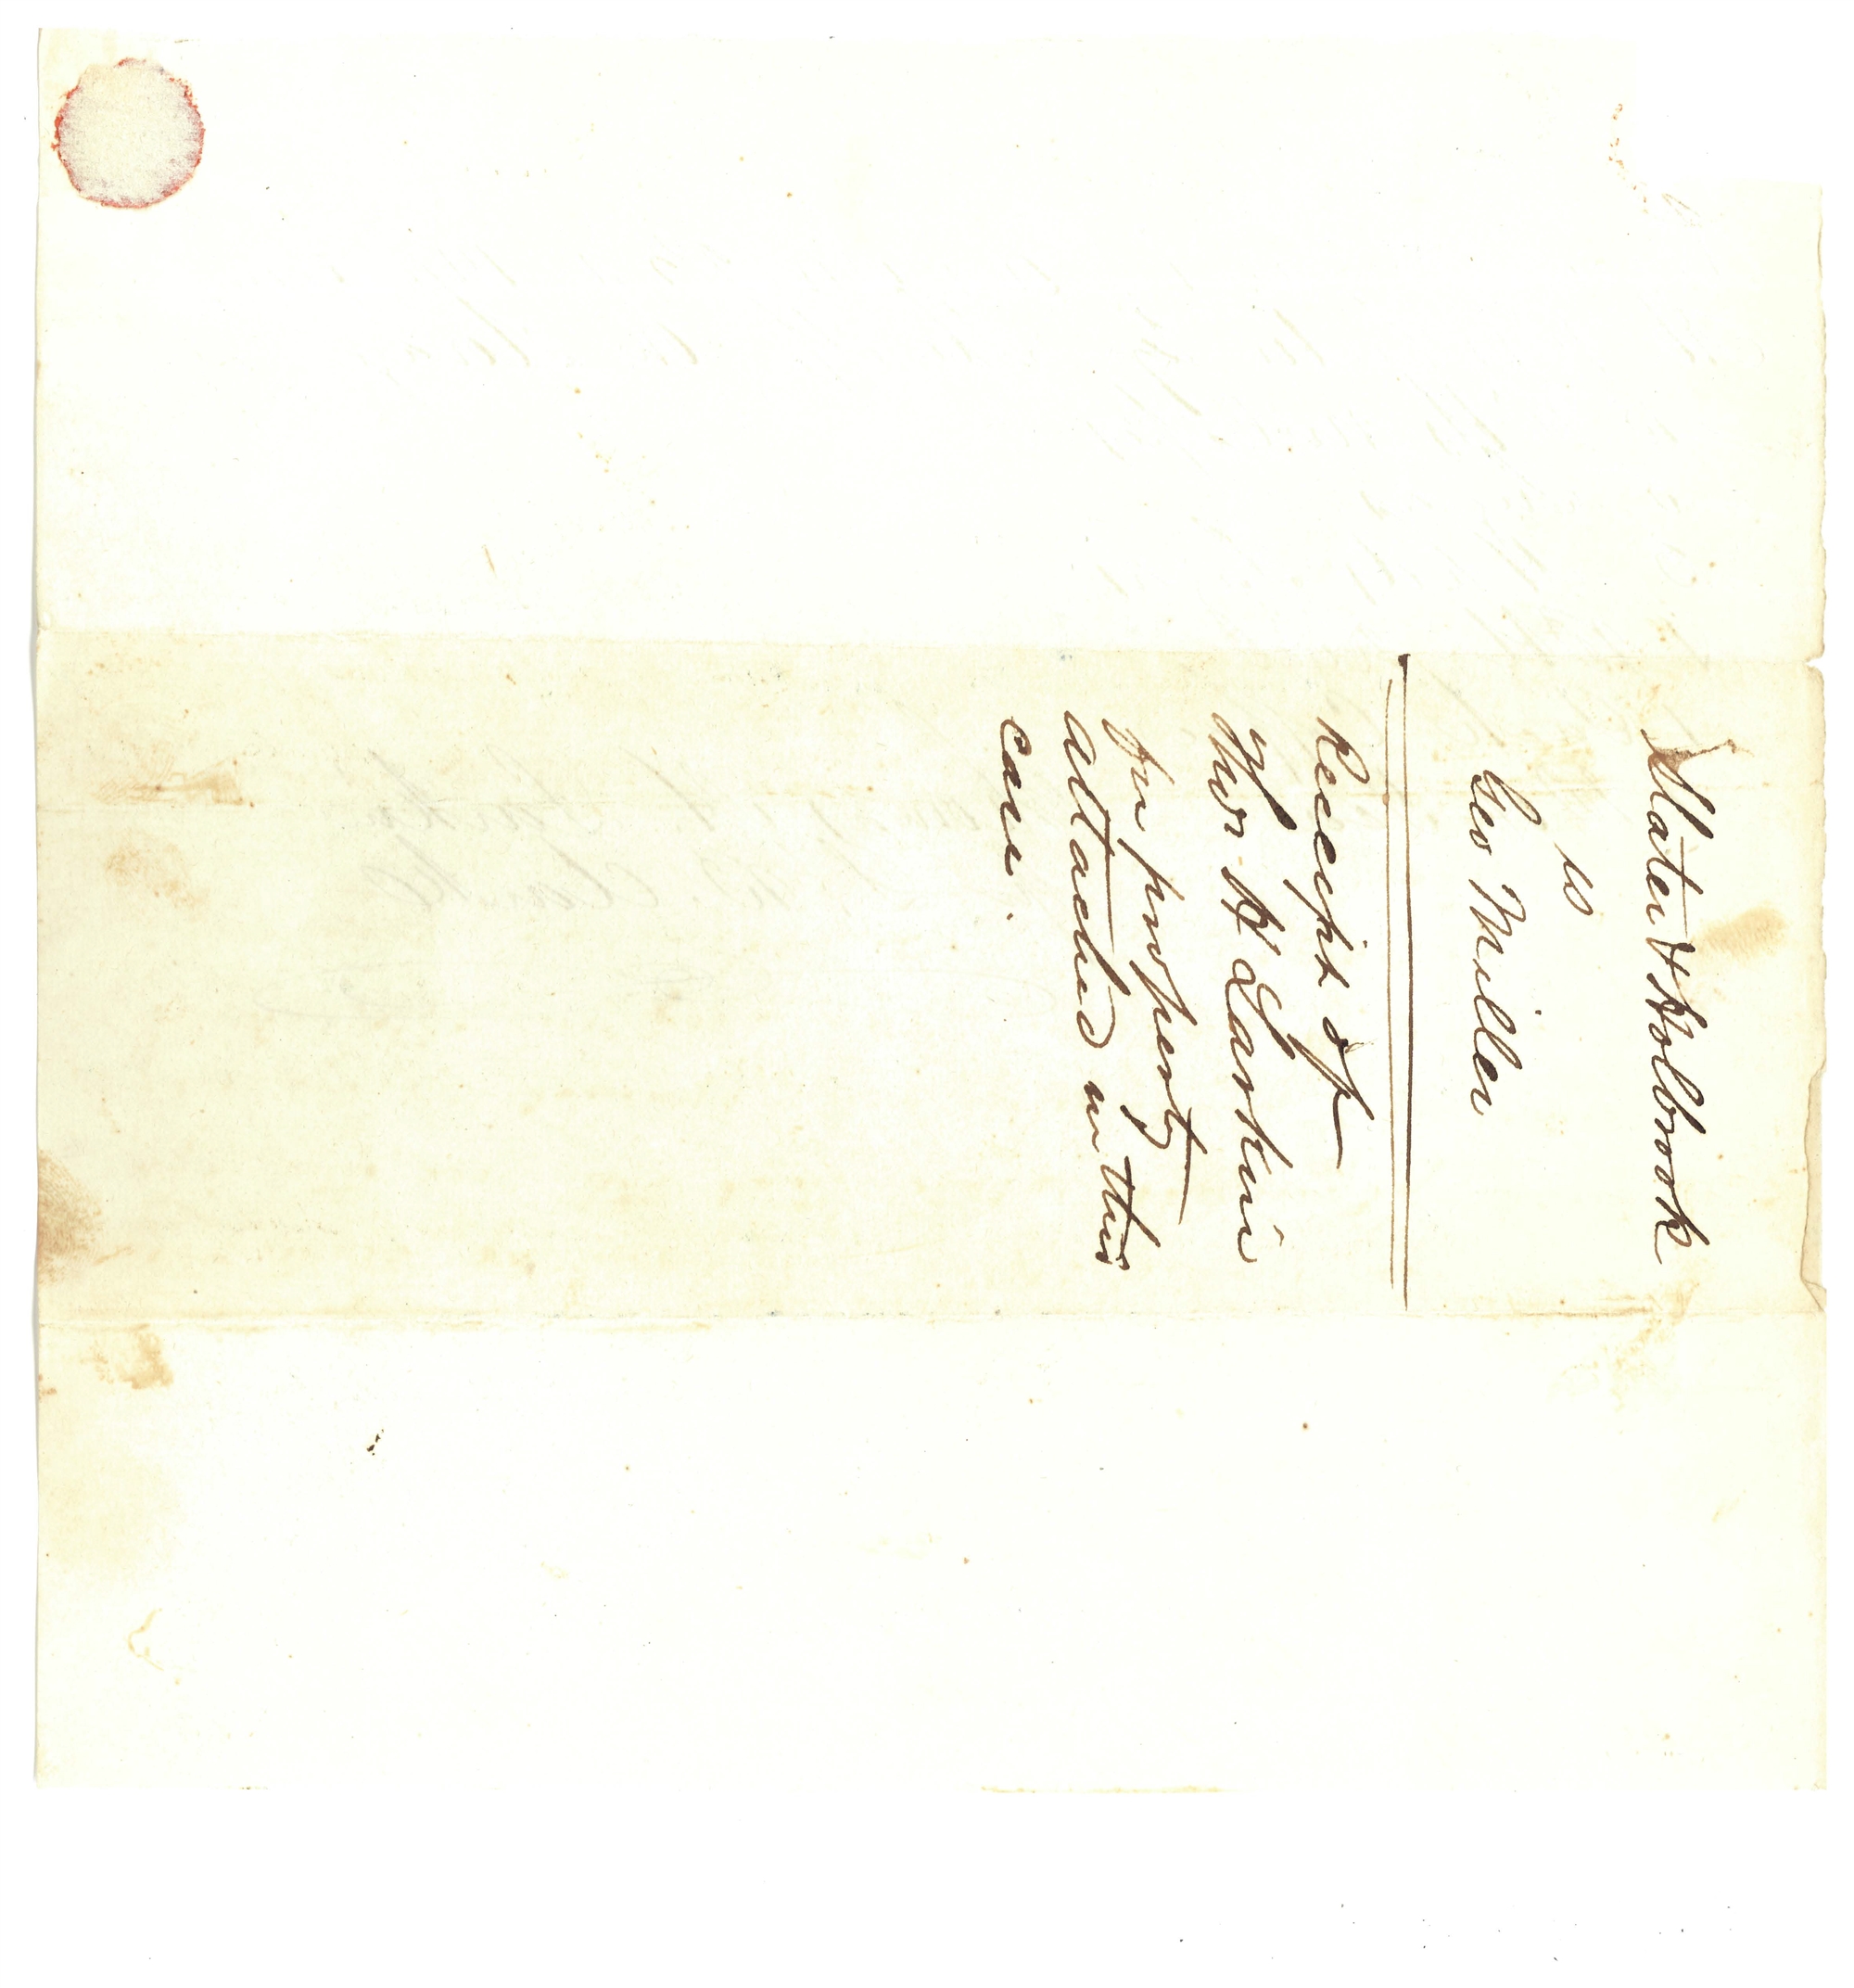 Slater & Holbrook
vs
Geo Miller
Receipt of
Thos H Larkin
for property
attached in this
case.